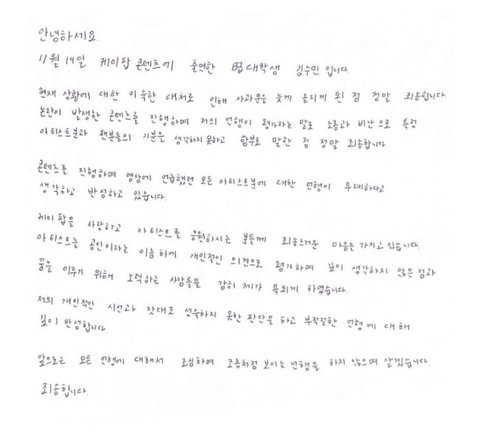 안녕하세요.
11월 19일 케이팝 콘텐츠에 출연한 대학생 김수민 입니다
현재 상황에 대한 미숙한 대처로 인해 사과문을 늦게 올리게 된 점 정말 죄송합니다
논란이 발생한 콘텐츠를 진행하며 저의 언행이 평가라는 말로 조롱과 비난으로 특정
아티스트분과 팬분들의 기분을 생각하지 못하고 함부로 말한 점 정말 죄송합니다
콘텐츠를 진행하며 영상에 언급했던 모든 아티스트분에 대한 언행이 무례하다고
생각하고 반성하고 있습니다.
케이팝을 사랑하고 아티스트를 응원하시는 분들께 죄송스러운 마음을 가지고 있습니다.
아티스트는 공인이라는 이유 하에 개인적인 의견으로 평가하며 깊이 생각하지 않은 점과
꿈을 이루기 위해 노력하는 사람들을 감히 제가 욕되게 하였습니다.
저의 개인적인 시선과 잣대로 성숙하지 못한 판단을 하고 부적절한 언행에 대해
깊이 반성합니다
앞으로는 모든 언행에 대해서 조심하며 조롱처럼 보이는 언행을 하지 않으며 살겠습니다
죄송합니다.